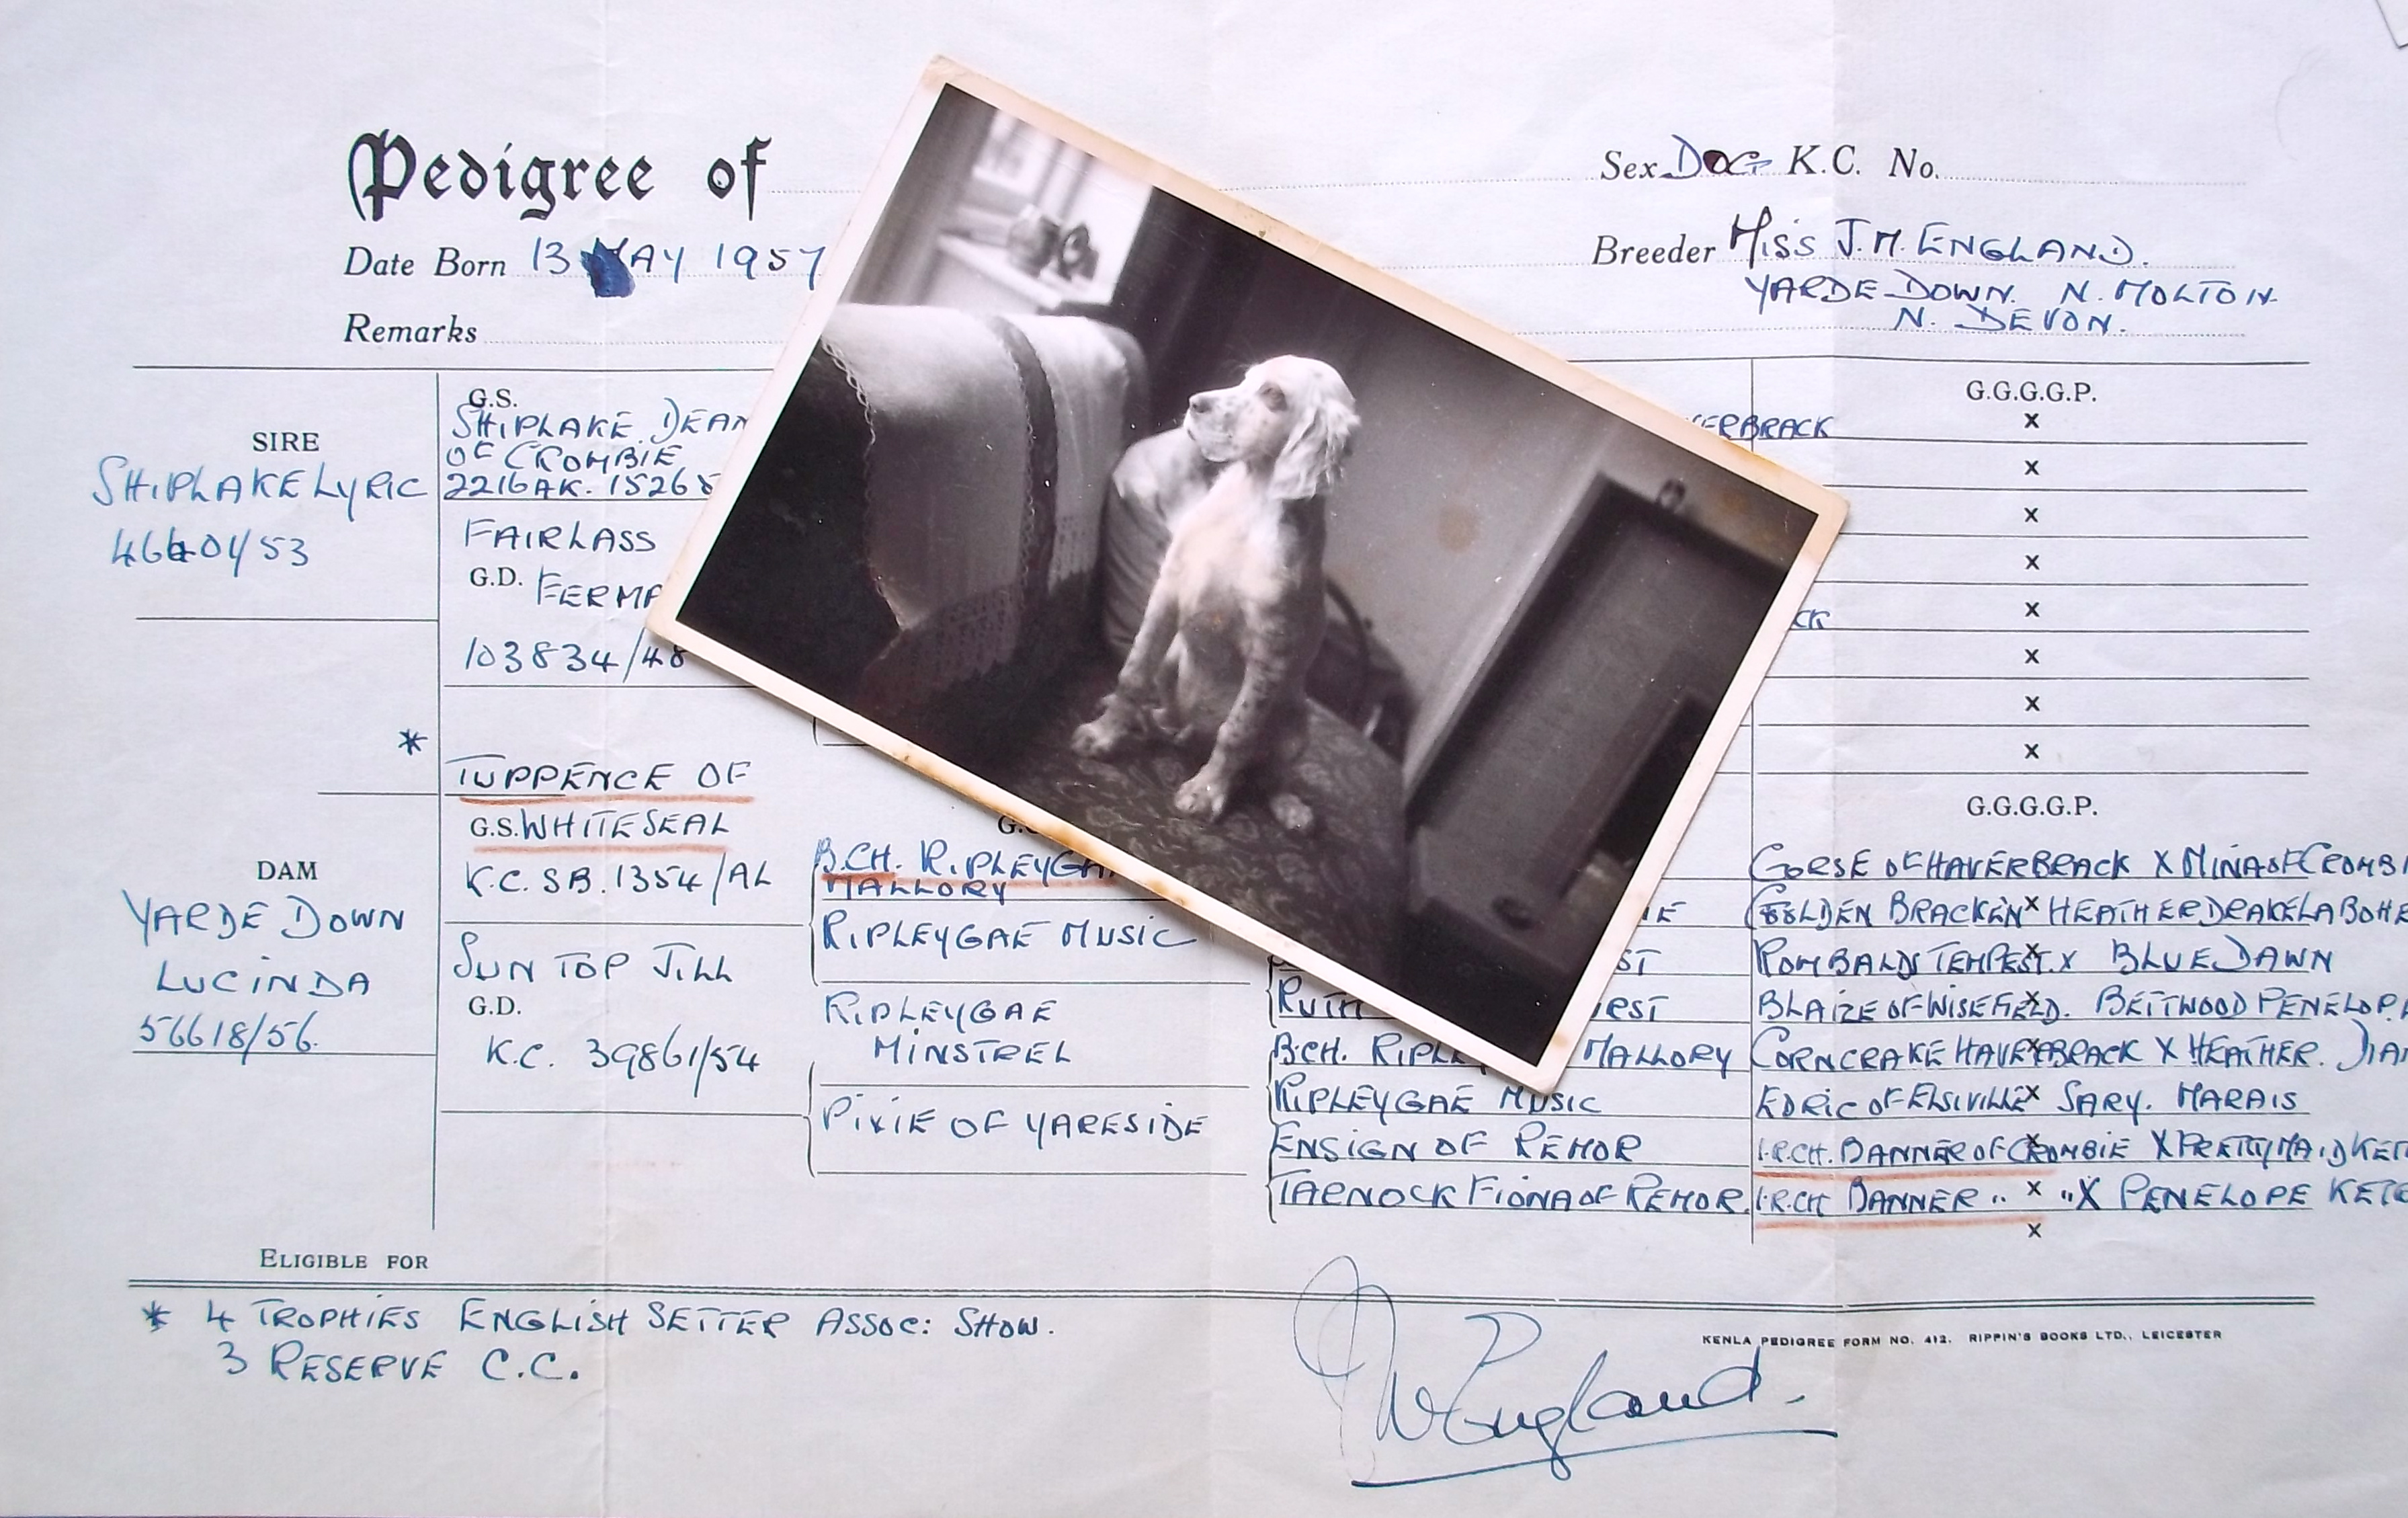 Pedigree of
Sex DOG K.C. No.
Date Born 13 MAY 1957
Breeder MISS J.M. ENGLAND.
YARDE DOWN. N. MOLTON.
N. DEVON.
Remarks
SIRE
SHIPLAKE LYRIC
G.S.
SHIPLAKE DEAN
OF CROMBIE
FAIRLASS
G.D.
103834/48
ERBRACK
CK
G.G.G.G.P.
x
x
x
x
x
x
x
x
*
DAM
YARDE DOWN
LUCINDA
56618/56.
TUPPENCE OF
G.S. WHITESEAL
K.C. SB. 1354/AL
SUN TOP JILL
G.D.
K.C. 39861/54
B.CH. RIPLEYGA
MALLORY
RIPLEYGAE MUSIC
RIPLEYGAE
MINSTREL
PIXIE OF YARESIDE
RUTH
B.CH. MALLORY
RIPLEYGAE MUSIC
ENSIGN OF REMOR
TARNOCK FIONA OF REMOR.
G.G.G.G.P.
GORSE OF HAVERBRACK X MINA OF CROMBI
GOLDEN BRACKEN x HEATHER DRAKELABOHE
ROMBALDS TEMPEST. X BLUE DAWN
BLAIZE OF WISEFIELD. BETTWOOD PENELOP
CORNCRAKE HAVERBRACK X HEATHER.
EDRIC OF ELSIVILLE x SARY. MARAIS
I.R.CH. BANNER OF CROMBIE X PRETTY MAID KET
I.R.CH BANNER " x " X PENELOPE KETE
x
ELIGIBLE FOR
* 4 TROPHIES ENGLISH SETTER ASSOC: SHOW.
3 RESERVE C.C.
KENLA PEDIGREE FORM NO. 412. RIPPIN'S BOOKS LTD., LEICESTER
England.